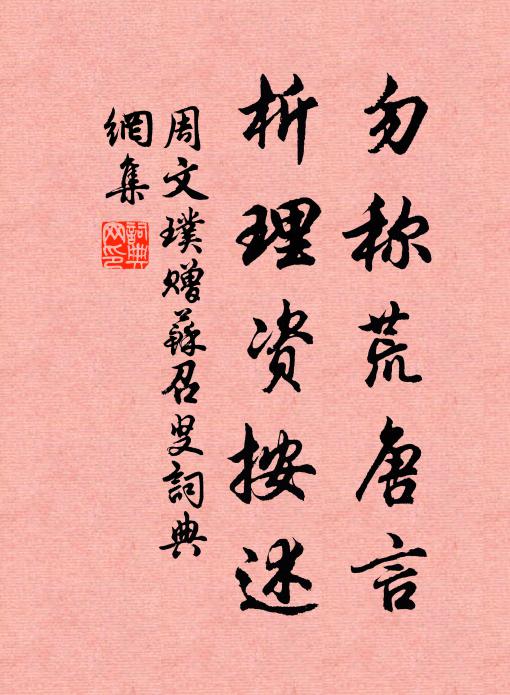 勿称荒唐言
析理资按述
周文璞赠蘇召叟詞典
網集
詞典
网印